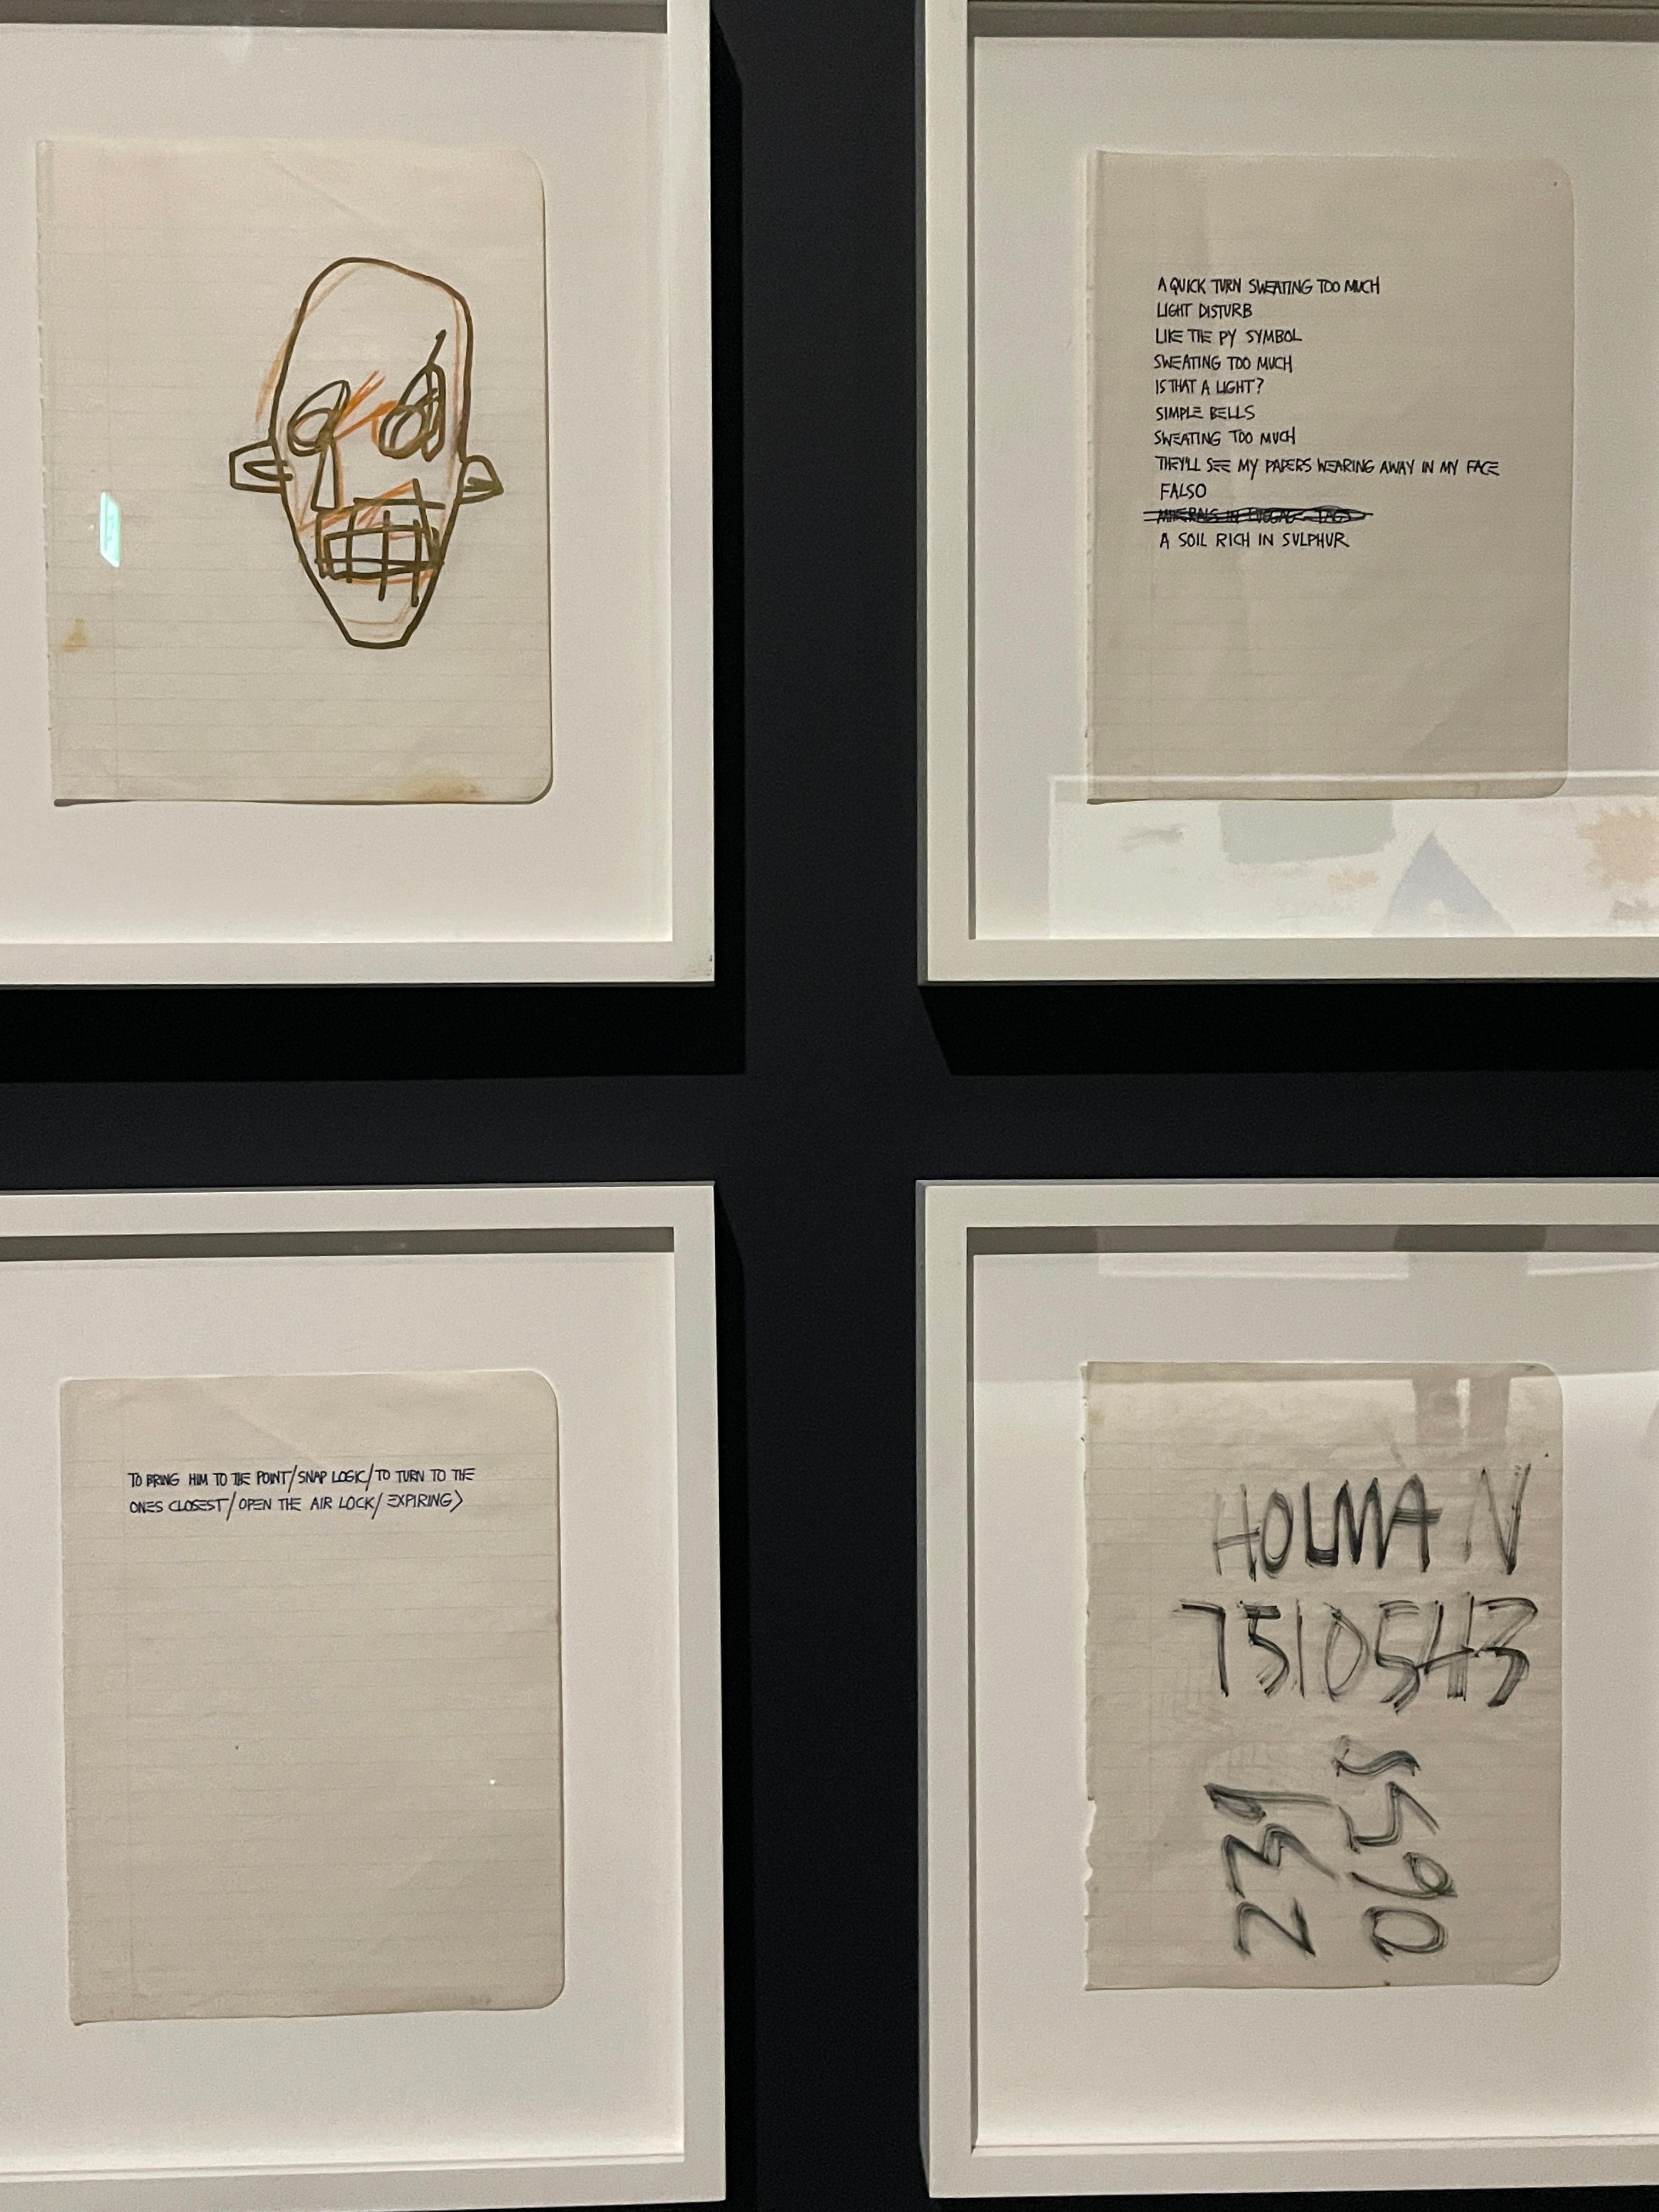 A QUICK TURN SWEATING TOO MUCH
LIGHT DISTURB
LIKE THE PY SYMBOL
SWEATING TOO MUCH
IS THAT A LIGHT?
SIMPLE BELLS
SWEATING TOO MUCH
THEY'LL SEE MY PAPERS WEARING AWAY IN MY FACE
FALSO
MINERALS IN LUGGAGE TAGS
A SOIL RICH IN SULPHUR
TO BRING HIM TO THE POINT/SNAP LOGIC/TO TURN TO THE
ONES CLOSEST/OPEN THE AIR LOCK/EXPIRING>
HOLMAN
7510543
239
065S